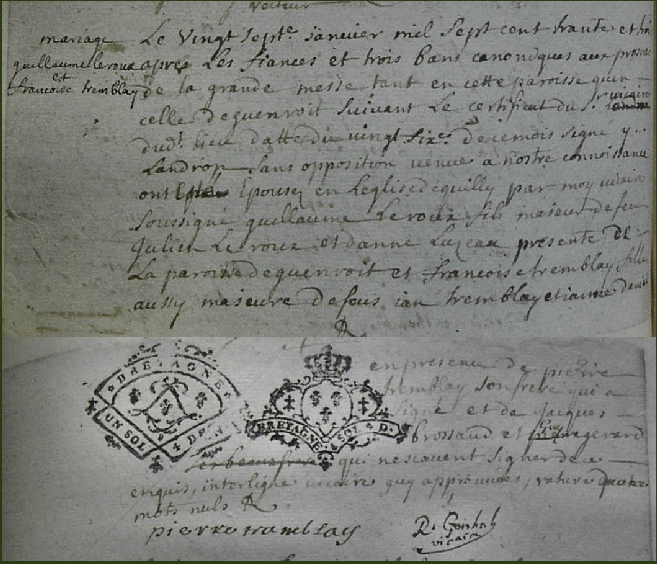 mariage
guillaume leroux
et
francoise tremblay
Le vingt septe. janvier mil sept cent trante et
apres Les fiances et trois bans canoniques aux prosnes
de la grande messe tant en cette paroisse qu'en
celle deguenroit suivant Le certificat du Sr. vicaire
dud. lieu datte du vingt sixe. decemois signé y..
Landrop sans opposition venue a nostre connoissance
ont Epousez en Leglise dequilly par moy vicaire
Soussigné guillaume Leroux fils majeur defeu
Julien Le roux et danne Luzeau presente de
La paroisse deguenroit et francoise tremblay fille
aussy majeure defeus jan tremblay et janne
R
en presence de pierre
tremblay son frere qui a
signé et de jacques
brossaud et guy gerard
qui nescavent signer de ce
enquis, interligne vicaire guy approuvées, rature quatre
mots nuls R
pierre tramblay
vicaire
BRETAGNE
UN SOL
4 DEN
BRETAGNE
SOL 4 D.